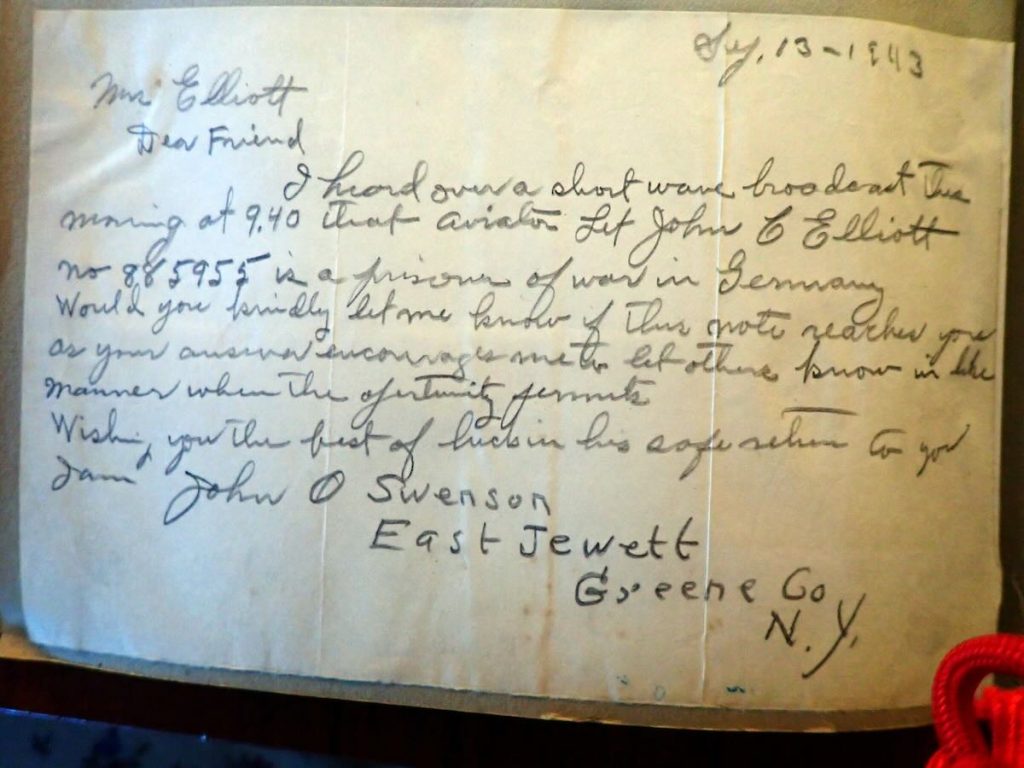 Sep. 13-1943
Mrs Elliott
Dear Friend
I heard over a short wave broadcast this
morning at 9.40 that aviator Lt John C Elliott
no 885955 is a prisoner of war in Germany
Would you kindly let me know if this note reaches you
as your answer encourages me to let others know in like
manner when the oportunity permits
Wishing you the best of luck in his safe return to you
I am John O Swenson
East Jewett
Greene Co
N.Y.